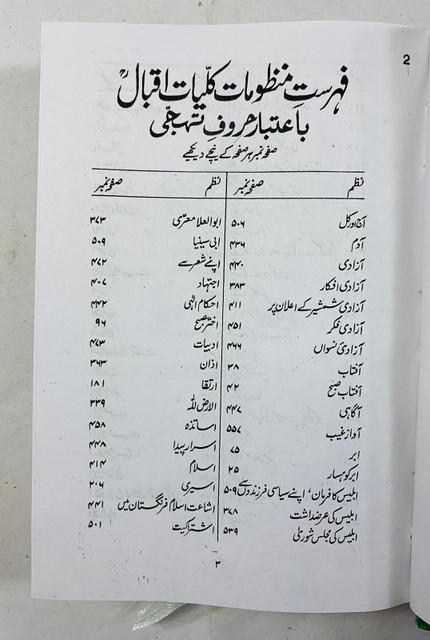 2
فہرست منظومات کلیات اقبالؒ
باعتبار حروف تہجّی
صفحہ نمبر ہر صفحہ کے نیچے دیکھیے
نظم صفحہ نمبر
آج اور کل ۵۰۶
آدم ۴۳۶
آزادی ۴۴۰
آزادی افکار ۳۸۳
آزادی شمشیر کے اعلان پر ۴۱۱
آزادی فکر ۴۵۱
آزادیٔ نسواں ۴۶۶
آفتاب ۳۸
آفتاب صبح ۴۲
آگاہی ۴۴۷
آواز غیب ۵۵۷
ابر ۷۵
ابر کوہسار ۲۵
ابلیس کا فرمان، اپنے سیاسی فرزندوں سے ۵۰۹
ابلیس کی عرضداشت ۳۷۸
ابلیس کی مجلس شوریٰ ۵۳۹
نظم صفحہ نمبر
ابوالعلا معرّی ۳۷۳
ابی سینیا ۵۰۹
اپنے شعر سے ۴۷۲
اجتہاد ۴۰۷
احکام الٰہی ۴۴۲
اختر صبح ۹۶
ادبیات ۴۷۳
اذان ۳۶۳
ارتقا ۱۸۱
الارض للہ ۳۳۹
اساتذہ ۴۵۸
اسرار پیدا ۴۴۸
اسلام ۴۱۴
اسیری ۲۰۶
اشاعت اسلام فرنگستان میں ۴۴۱
اشتراکیت ۵۰۱
۳